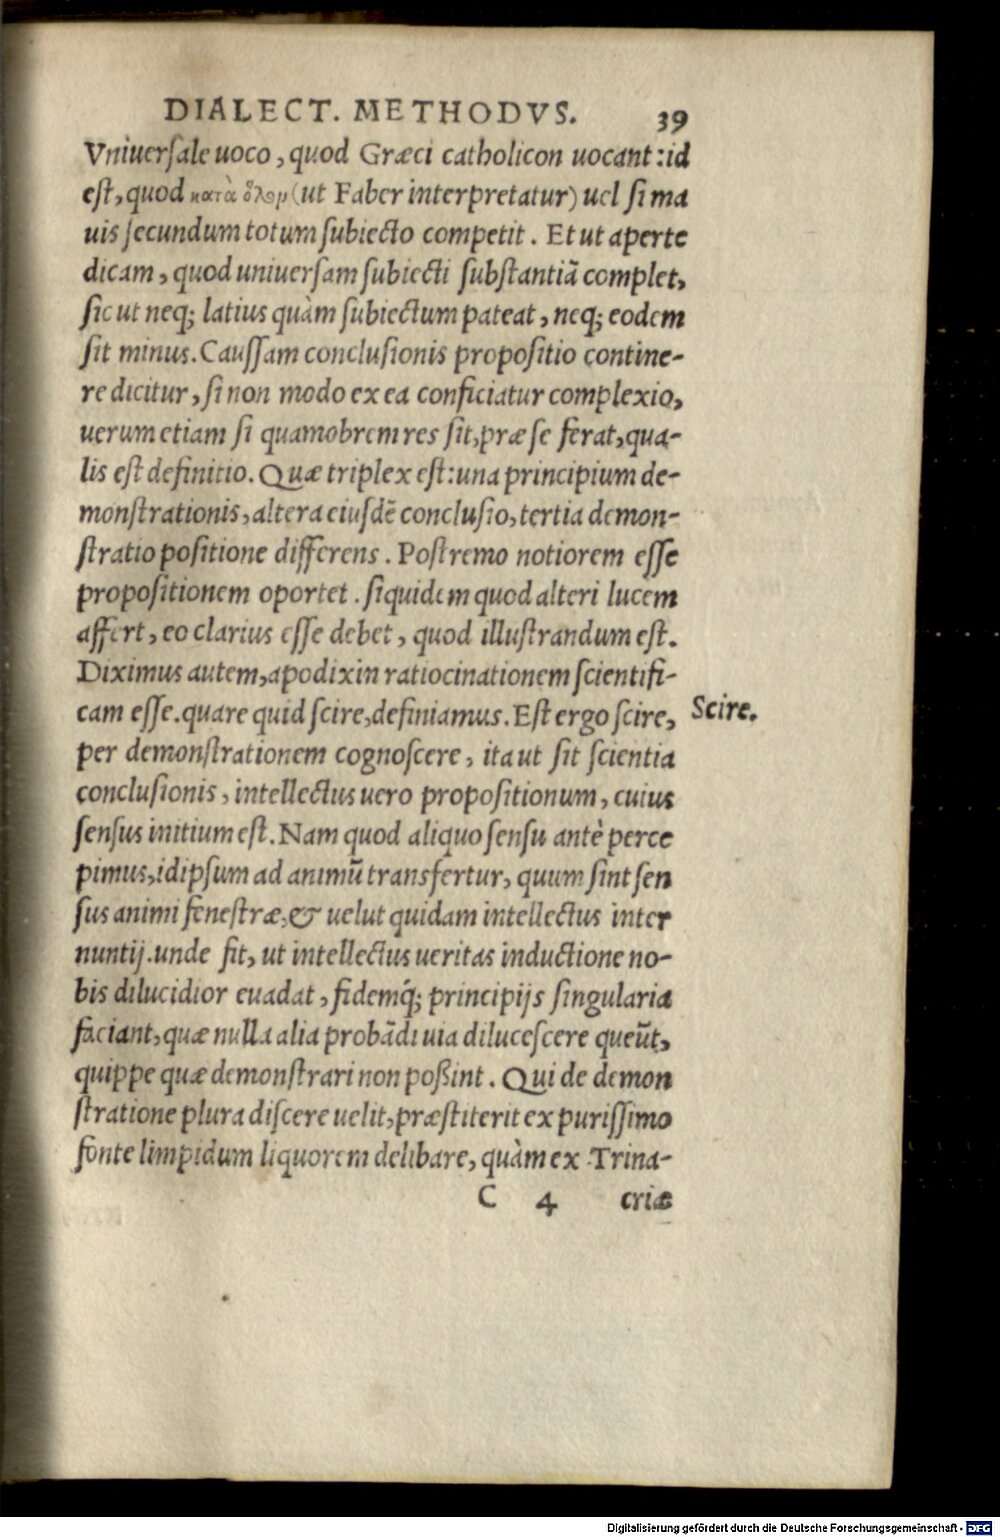 DIALECT. METHODVS. 39
Vniuersale uoco, quod Græci catholicon uocant: id
est, quod κατὰ ὅλον (ut Faber interpretatur) uel si ma
uis secundum totum subiecto competit. Et ut aperte
dicam, quod uniuersam subiecti substantiā complet,
sic ut neq; latius quàm subiectum pateat, neq; eodem
sit minus. Caussam conclusionis propositio contine-
re dicitur, si non modo ex ea conficiatur complexio,
uerum etiam si quamobrem res sit, præ se ferat, qua-
lis est definitio. Quæ triplex est: una principium de-
monstrationis, altera eiusdē conclusio, tertia demon-
stratio positione differens. Postremo notiorem esse
propositionem oportet. siquidem quod alteri lucem
affert, eo clarius esse debet, quod illustrandum est.
Diximus autem, apodixin ratiocinationem scientifi-
cam esse. quare quid scire, definiamus. Est ergo scire,
Scire.
per demonstrationem cognoscere, ita ut sit scientia
conclusionis, intellectus uero propositionum, cuius
sensus initium est. Nam quod aliquo sensu antè perce
pimus, id ipsum ad animū transfertur, quum sint sen
sus animi fenestræ, & uelut quidam intellectus inter
nuntij. unde fit, ut intellectus ueritas inductione no-
bis dilucidior euadat, fidemq́; principijs singularia
faciant, quæ nulla alia probādi uia dilucescere queūt,
quippe quæ demonstrari non poßint. Qui de demon
stratione plura discere uelit, præstiterit ex purissimo
fonte limpidum liquorem delibare, quàm ex Trina-
C 4 criæ
Digitalisierung gefördert durch die Deutsche Forschungsgemeinschaft - DFG